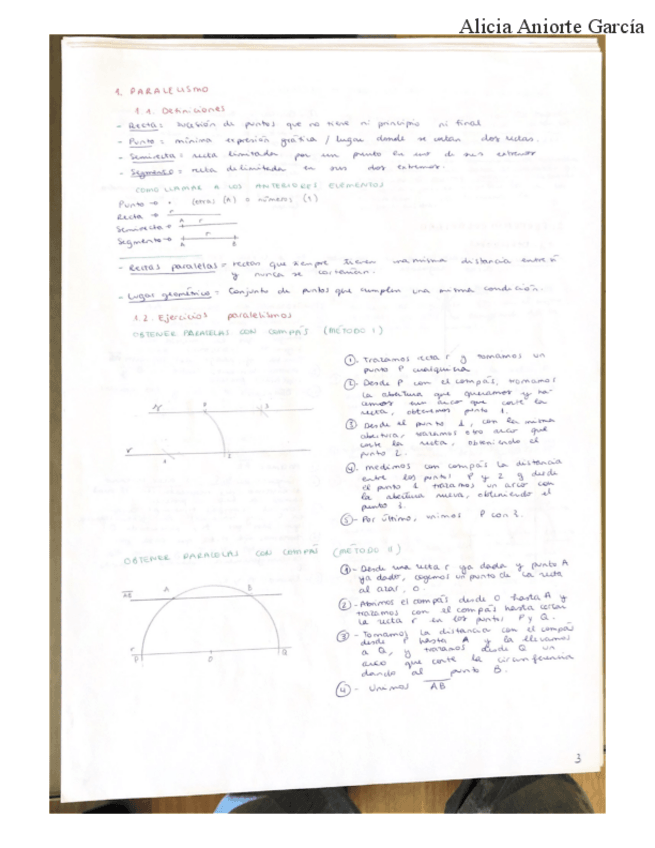 Alicia Aniorte García
1. PARALELISMO
1.1. Definiciones
- Recta: sucesión de puntos que no tiene ni principio ni final
- Punto: mínima expresión gráfica / lugar donde se cortan dos rectas.
- Semirecta: recta limitada por un punto en uno de sus extremos
- Segmento: recta delimitada en sus dos extremos.
COMO LLAMAR A LOS ANTERIORES ELEMENTOS
Punto → • letras (A) o números (1)
Recta → r
Semirecta → A r
Segmento → A B
- Rectas paralelas = rectas que siempre tienen una misma distancia entre sí
y nunca se cortarían.
- Lugar geométrico = Conjunto de puntos que cumplen una misma condición.
1.2. Ejercicios paralelismos
OBTENER PARALELAS CON COMPÁS (MÉTODO I)
①- Trazamos recta r y tomamos un
punto P cualquiera
②- Desde P con el compás, tomamos
la abertura que queramos y ha-
cemos un arco que corte la
recta, obtenemos punto 1.
③ Desde el punto 1, con la misma
abertura, trazamos otro arco que
corte la recta, obteniendo el
punto 2.
④. Medimos con compás la distancia
entre los puntos P y 2 y desde
el punto 1 trazamos un arco con
la abertura nueva, obteniendo el
punto 3.
⑤- Por último, unimos P con 3.
P 3
r 1
OBTENER PARALELAS CON COMPÁS (MÉTODO II)
①- Desde una recta r ya dada y punto A
ya dado, cogemos un punto de la recta
al azar, O.
②- Abrimos el compás desde O hasta A y
trazamos con el compás hasta cortar
la recta r en los puntos P y Q.
③- Tomamos la distancia con el compás
desde P hasta A y la llevamos
a Q, y trazamos desde Q un
arco que corte la circunferencia
dando al punto B.
④- Unimos AB
AB A B
r P O Q
3